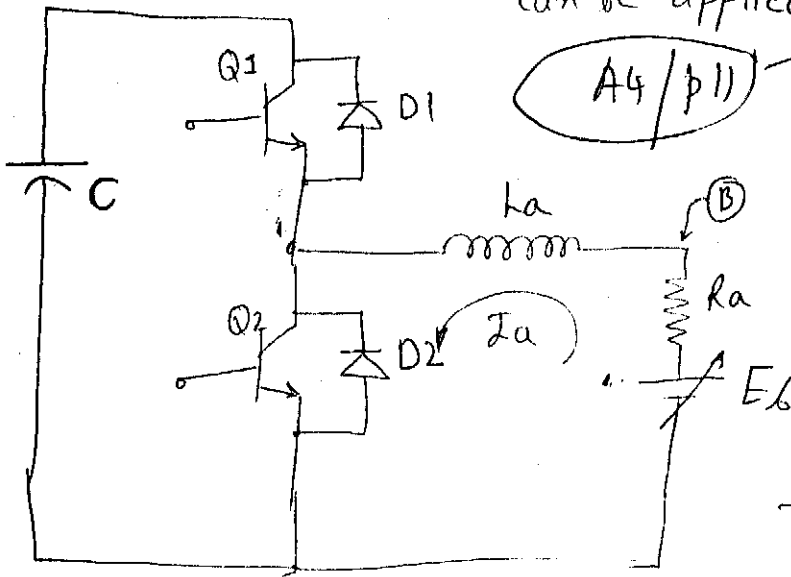 can be applie
A4/p11
Q1
D1
C
La
B
Ra
Q2
D2
Ia
Eb